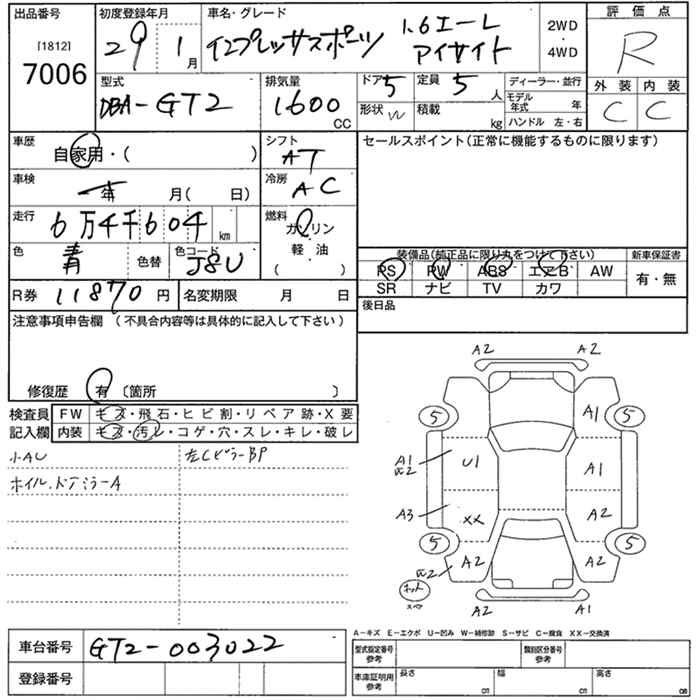 出品番号
[1812]
7006
初度登録年月
29 1月
車名・グレード
インプレッサスポーツ
1.6エーL
アイサイト
2WD
・
4WD
評価点
R
外装 内装
C C
型式
DBA-GT2
排気量
1600
CC
ドア 5
定員 5 人
形状 W
積載 kg
ディーラー・並行
モデル年式 年
ハンドル 左・右
車歴
自家用・( )
シフト
AT
セールスポイント(正常に機能するものに限ります)
車検
年 月( 日)
冷房
AC
走行
6万4千604 km
燃料
ガソリン
軽・油
( )
色
青
色替
色コード
J8U
装備品(純正品に限り丸をつけて下さい)
新車保証書
PS PW ABS エアB AW
有・無
SR ナビ TV カワ
R券 11870円
名変期限 月 日
後日品
注意事項申告欄 (不具合内容等は具体的に記入して下さい)
修復歴 有 〔箇所 〕
検査員 FW キズ・飛石・ヒビ割・リペア跡・X要
記入欄 内装 キズ・汚レ・コゲ・穴・スレ・キレ・破レ
小AU
左Cピラ-BP
ホイル、ドアミラーA
A2 A2
5 A1 5
A1
W2
U1 A1
A3 XX A2
5 A2 A2 5
W2
キット
スペア
A2 A1
A-キズ E-エクボ U-凹み W-補修跡 S-サビ C-腐食 XX-交換済
車台番号
GT2-003022
登録番号
型式指定番号
参考
類別区分番号
参考
車庫証明用
参考
長さ cm
幅 cm
高さ cm